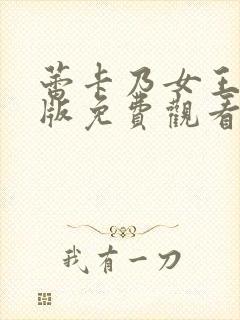 蕾卡乃女王
版免費觀看
我有一刀